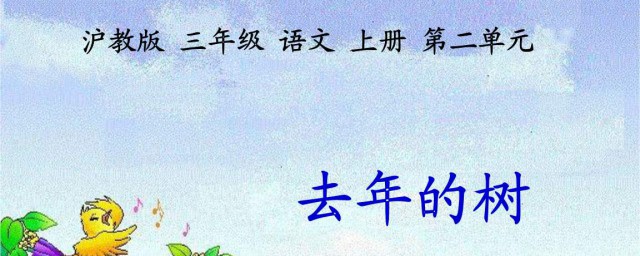 沪教版 三年级 语文 上册 第二单元
去年的树